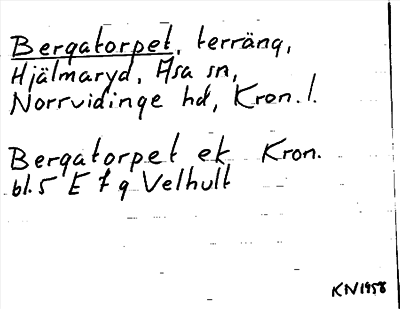 Bergatorpet, terräng,
Hjälmaryd, Åsa sn,
Norrvidinge hd, Kron. l.
Bergatorpet ek Kron.
bl. 5 E 7 g Velhult
KN 1958